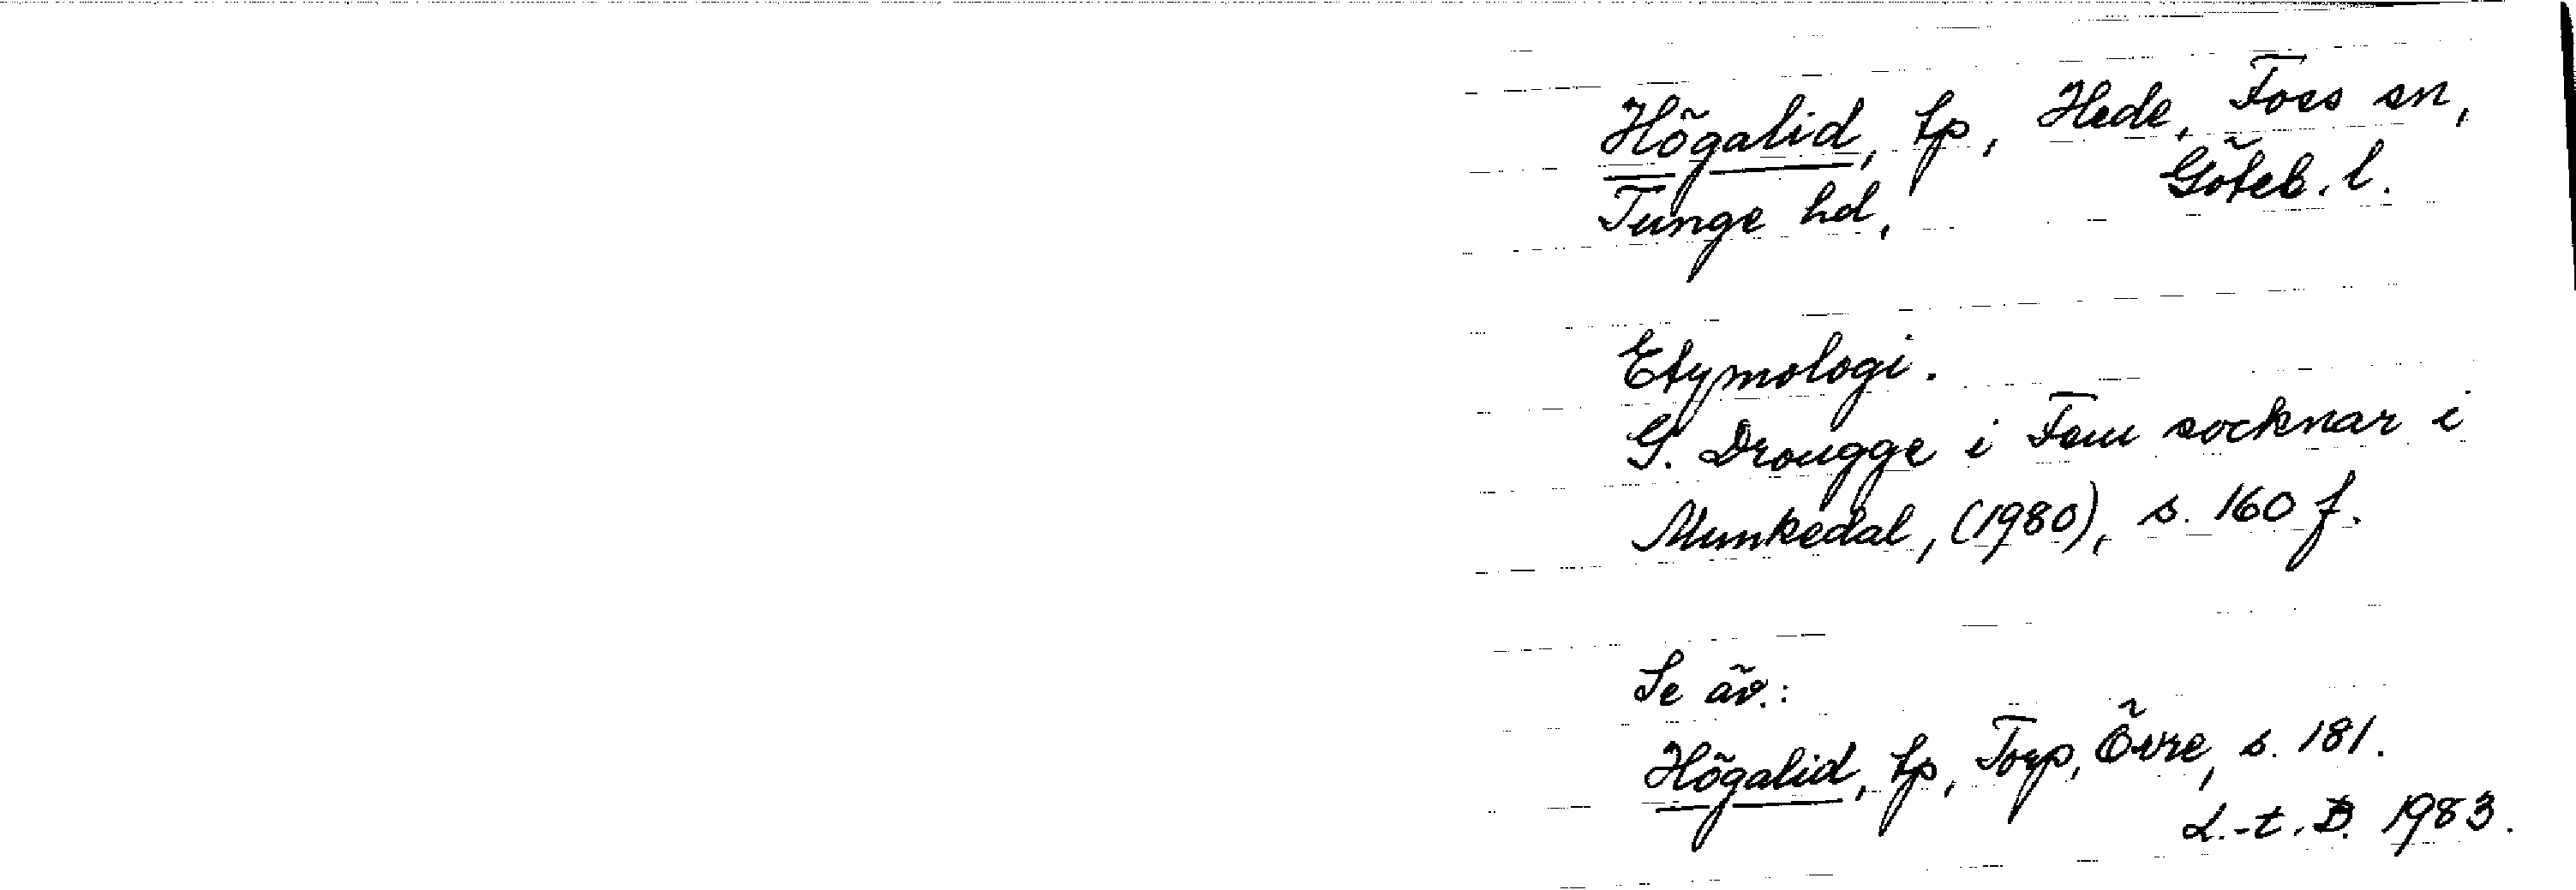 Högalid, tp, Hede, Foss sn,
Tunge hd, Göteb. l.
Etymologi.
G. Drougge i Fem socknar i
Munkedal, (1980), s. 160 f.
Se äv.:
Högalid, tp, Torp, Övre, s. 181.
L.-t. B. 1983.